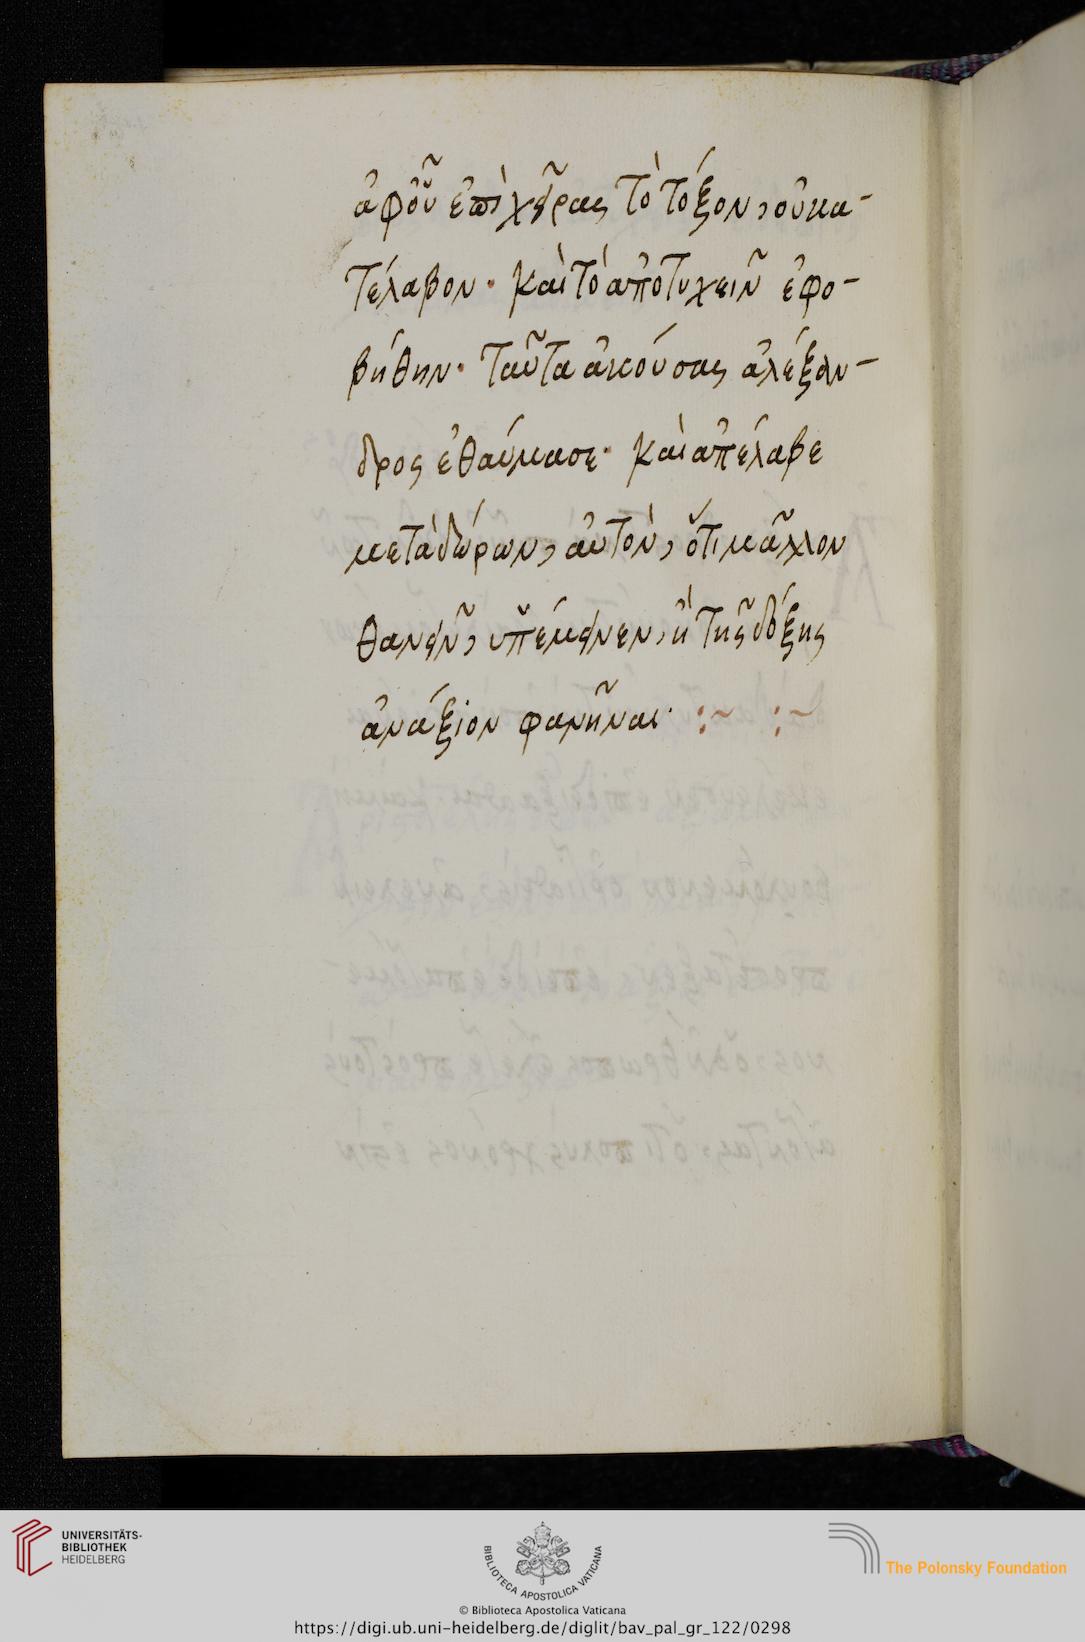 ἀφοῦ ἐπὶ χεῖρας τὸ τόξον, οὐ κα-
τέλαβον· καὶ τὸ ἀποτυχεῖν ἐφο-
βήθην· ταῦτα ἀκούσας ἀλέξαν-
δρος ἐθαύμασε· καὶ ἀπέλαβε
μετὰ δώρων, αὐτὸν, ὅτι μᾶλλον
θανεῖν, ὑπέμεινεν, ἢ τῆς δόξης
ἀνάξιον φανῆναι· :~ :~
UNIVERSITÄTS-
BIBLIOTHEK
HEIDELBERG
BIBLIOTECA APOSTOLICA VATICANA
The Polonsky Foundation
© Biblioteca Apostolica Vaticana
https://digi.ub.uni-heidelberg.de/diglit/bav_pal_gr_122/0298